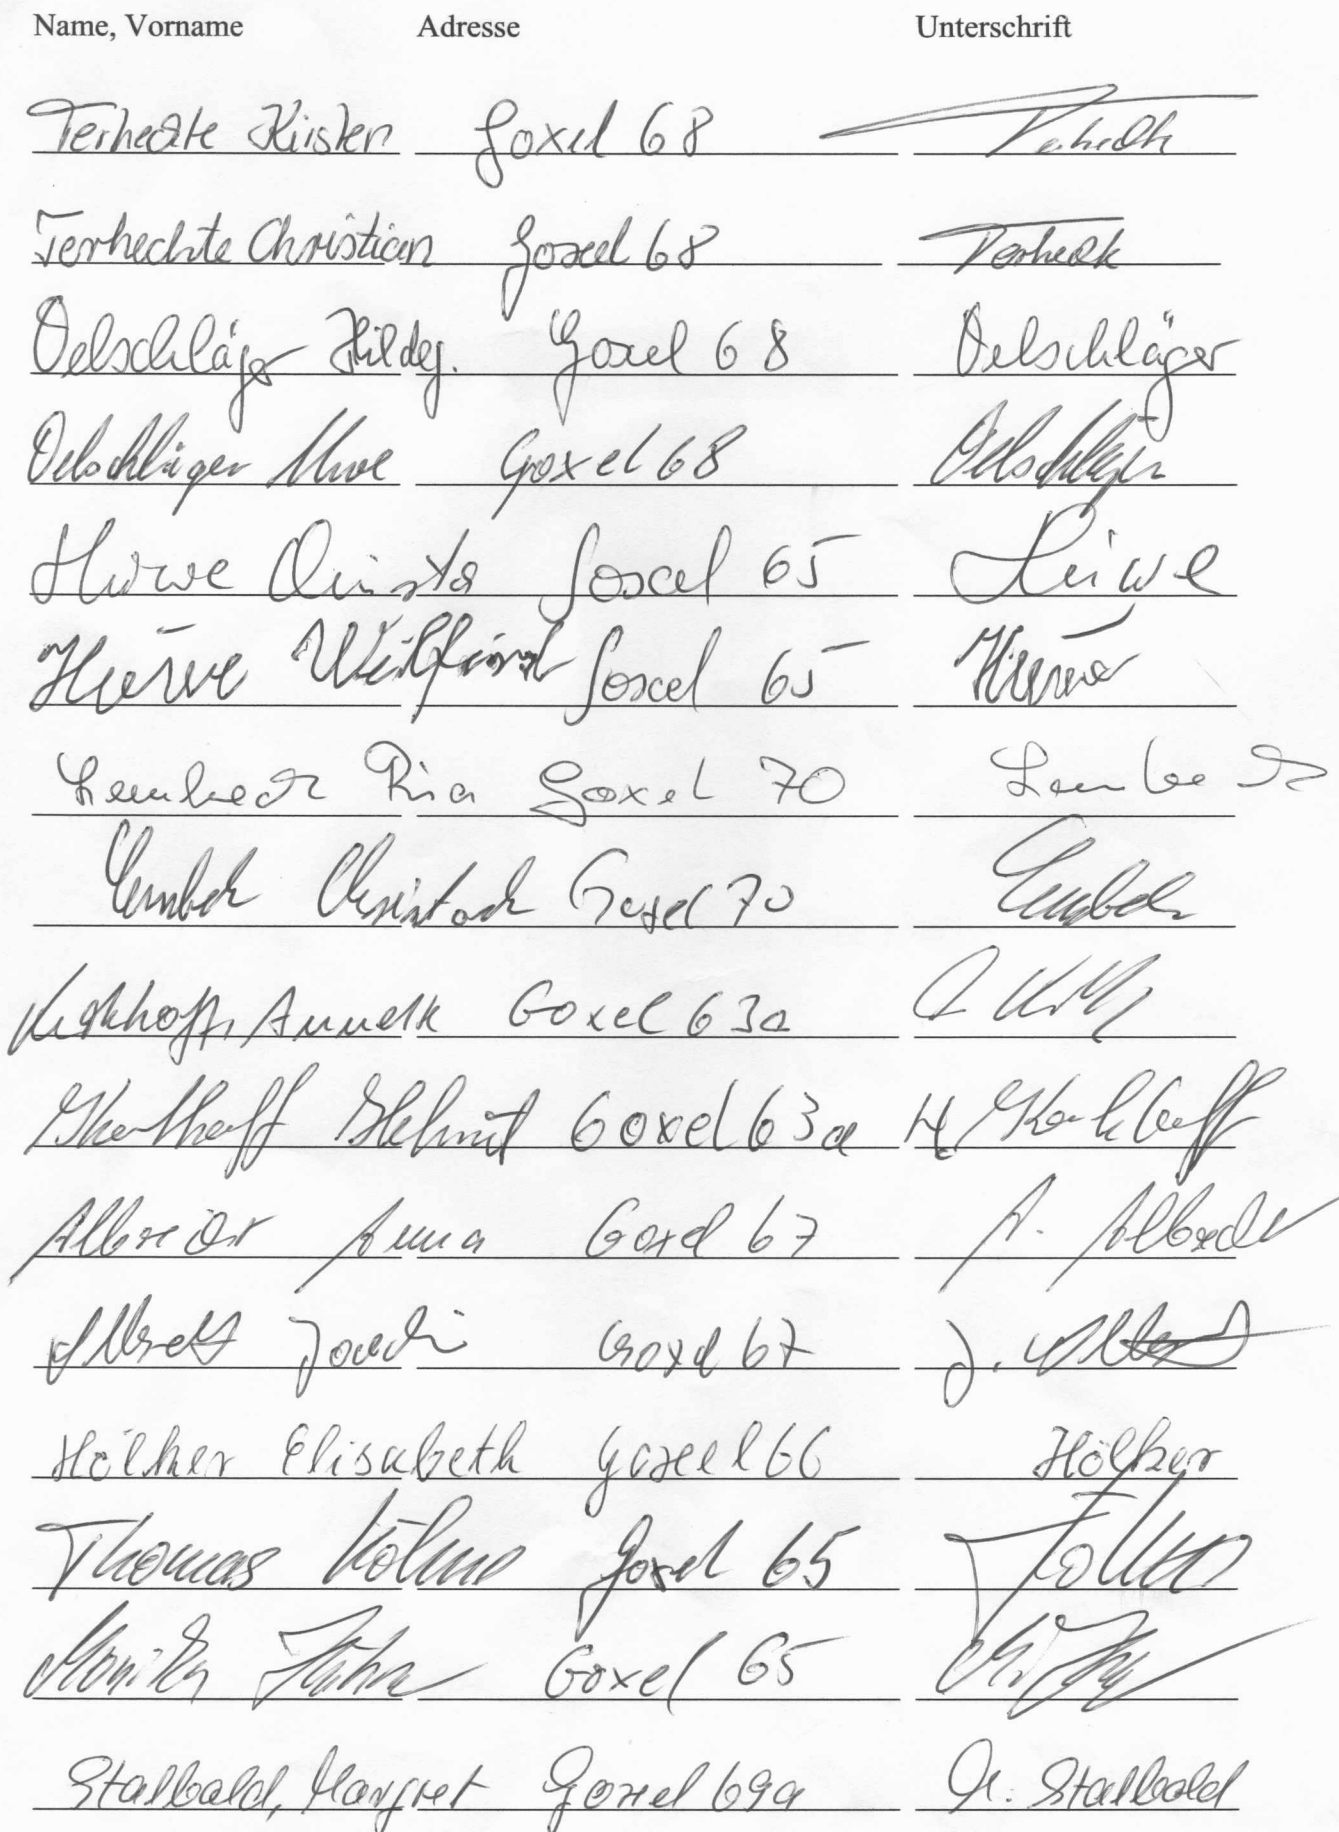 Name, Vorname Adresse Unterschrift
Terhechte Kirsten Goxel 68 Terhecht
Terhechte Christian Goxel 68 Terhecht
Oelschläger Hildeg. Goxel 68 Oelschläger
Oelschläger Uwe Goxel 68 Oelschläger
Hüwe Christa Goxel 65 Hüwe
Hüwe Wilfried Goxel 65 Hüwe
Lembeck Ria Goxel 70 Lembeck
Lembeck Goxel 70 Lembeck
Kerkhoff, Annette Goxel 63a
Kerkhoff Helmut Goxel 63a H. Kerkhoff
Albrecht Anna Goxel 67 A. Albrecht
Albrecht Goxel 67 J.
Hölker Elisabeth Goxel 66 Hölker
Thomas Goxel 65
Monika Goxel 65
Stallbold, Margret Goxel 69a M. Stallbold